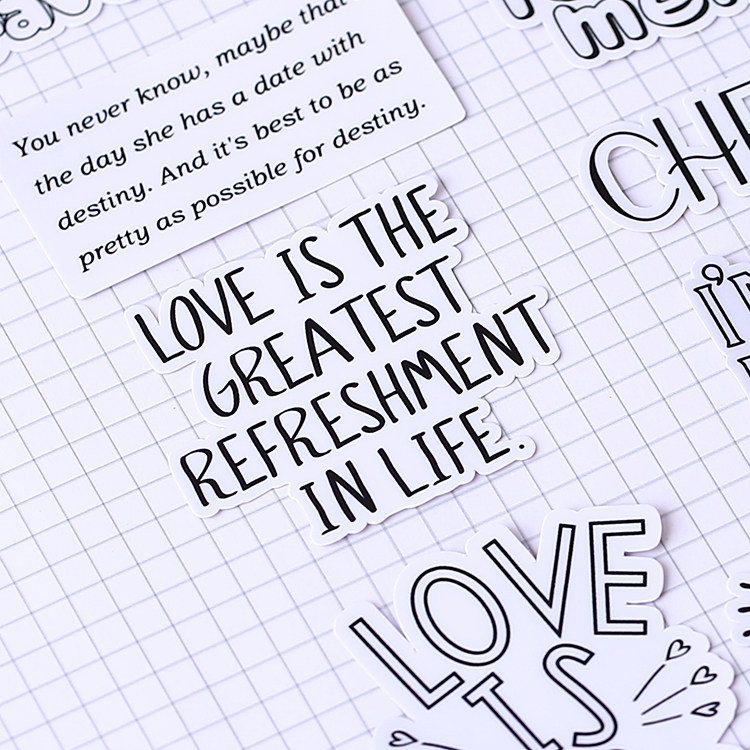 You never know, maybe that
the day she has a date with
destiny. And it's best to be as
pretty as possible for destiny.
LOVE IS THE
GREATEST
REFRESHMENT
IN LIFE.
LOVE
IS